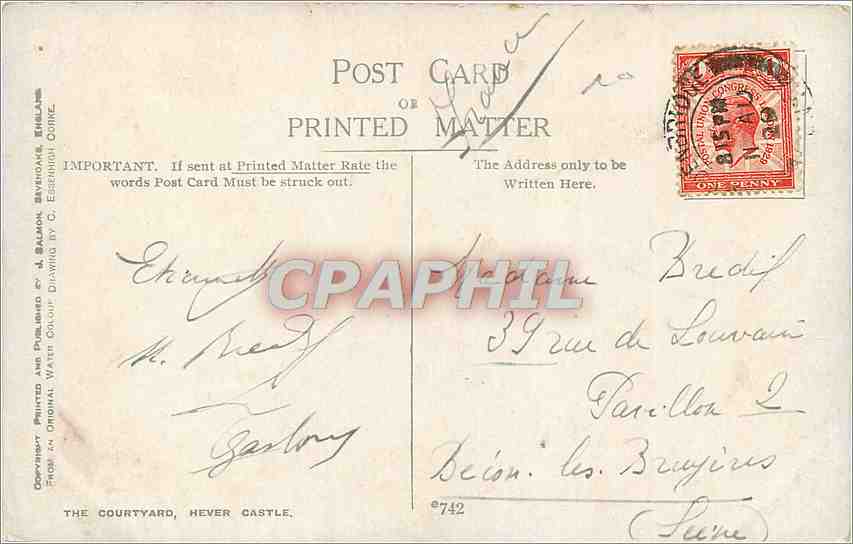 POST CARD
OR
PRINTED MATTER
IMPORTANT. If sent at Printed Matter Rate the
words Post Card Must be struck out.
The Address only to be
Written Here.
France
POSTAL UNION CONGRESS
1929
ONE PENNY
8 15 PM
29
COPYRIGHT PRINTED AND PUBLISHED BY J. SALMON, SEVENOAKS, ENGLAND
FROM AN ORIGINAL WATER COLOUR DRAWING BY C. ESSENHIGH CORKE.
CPAPHIL
Madame Bredif
39 rue de Louvain
Pavillon 2
Bécon. les. Bruyères
(Seine)
THE COURTYARD, HEVER CASTLE.
©742